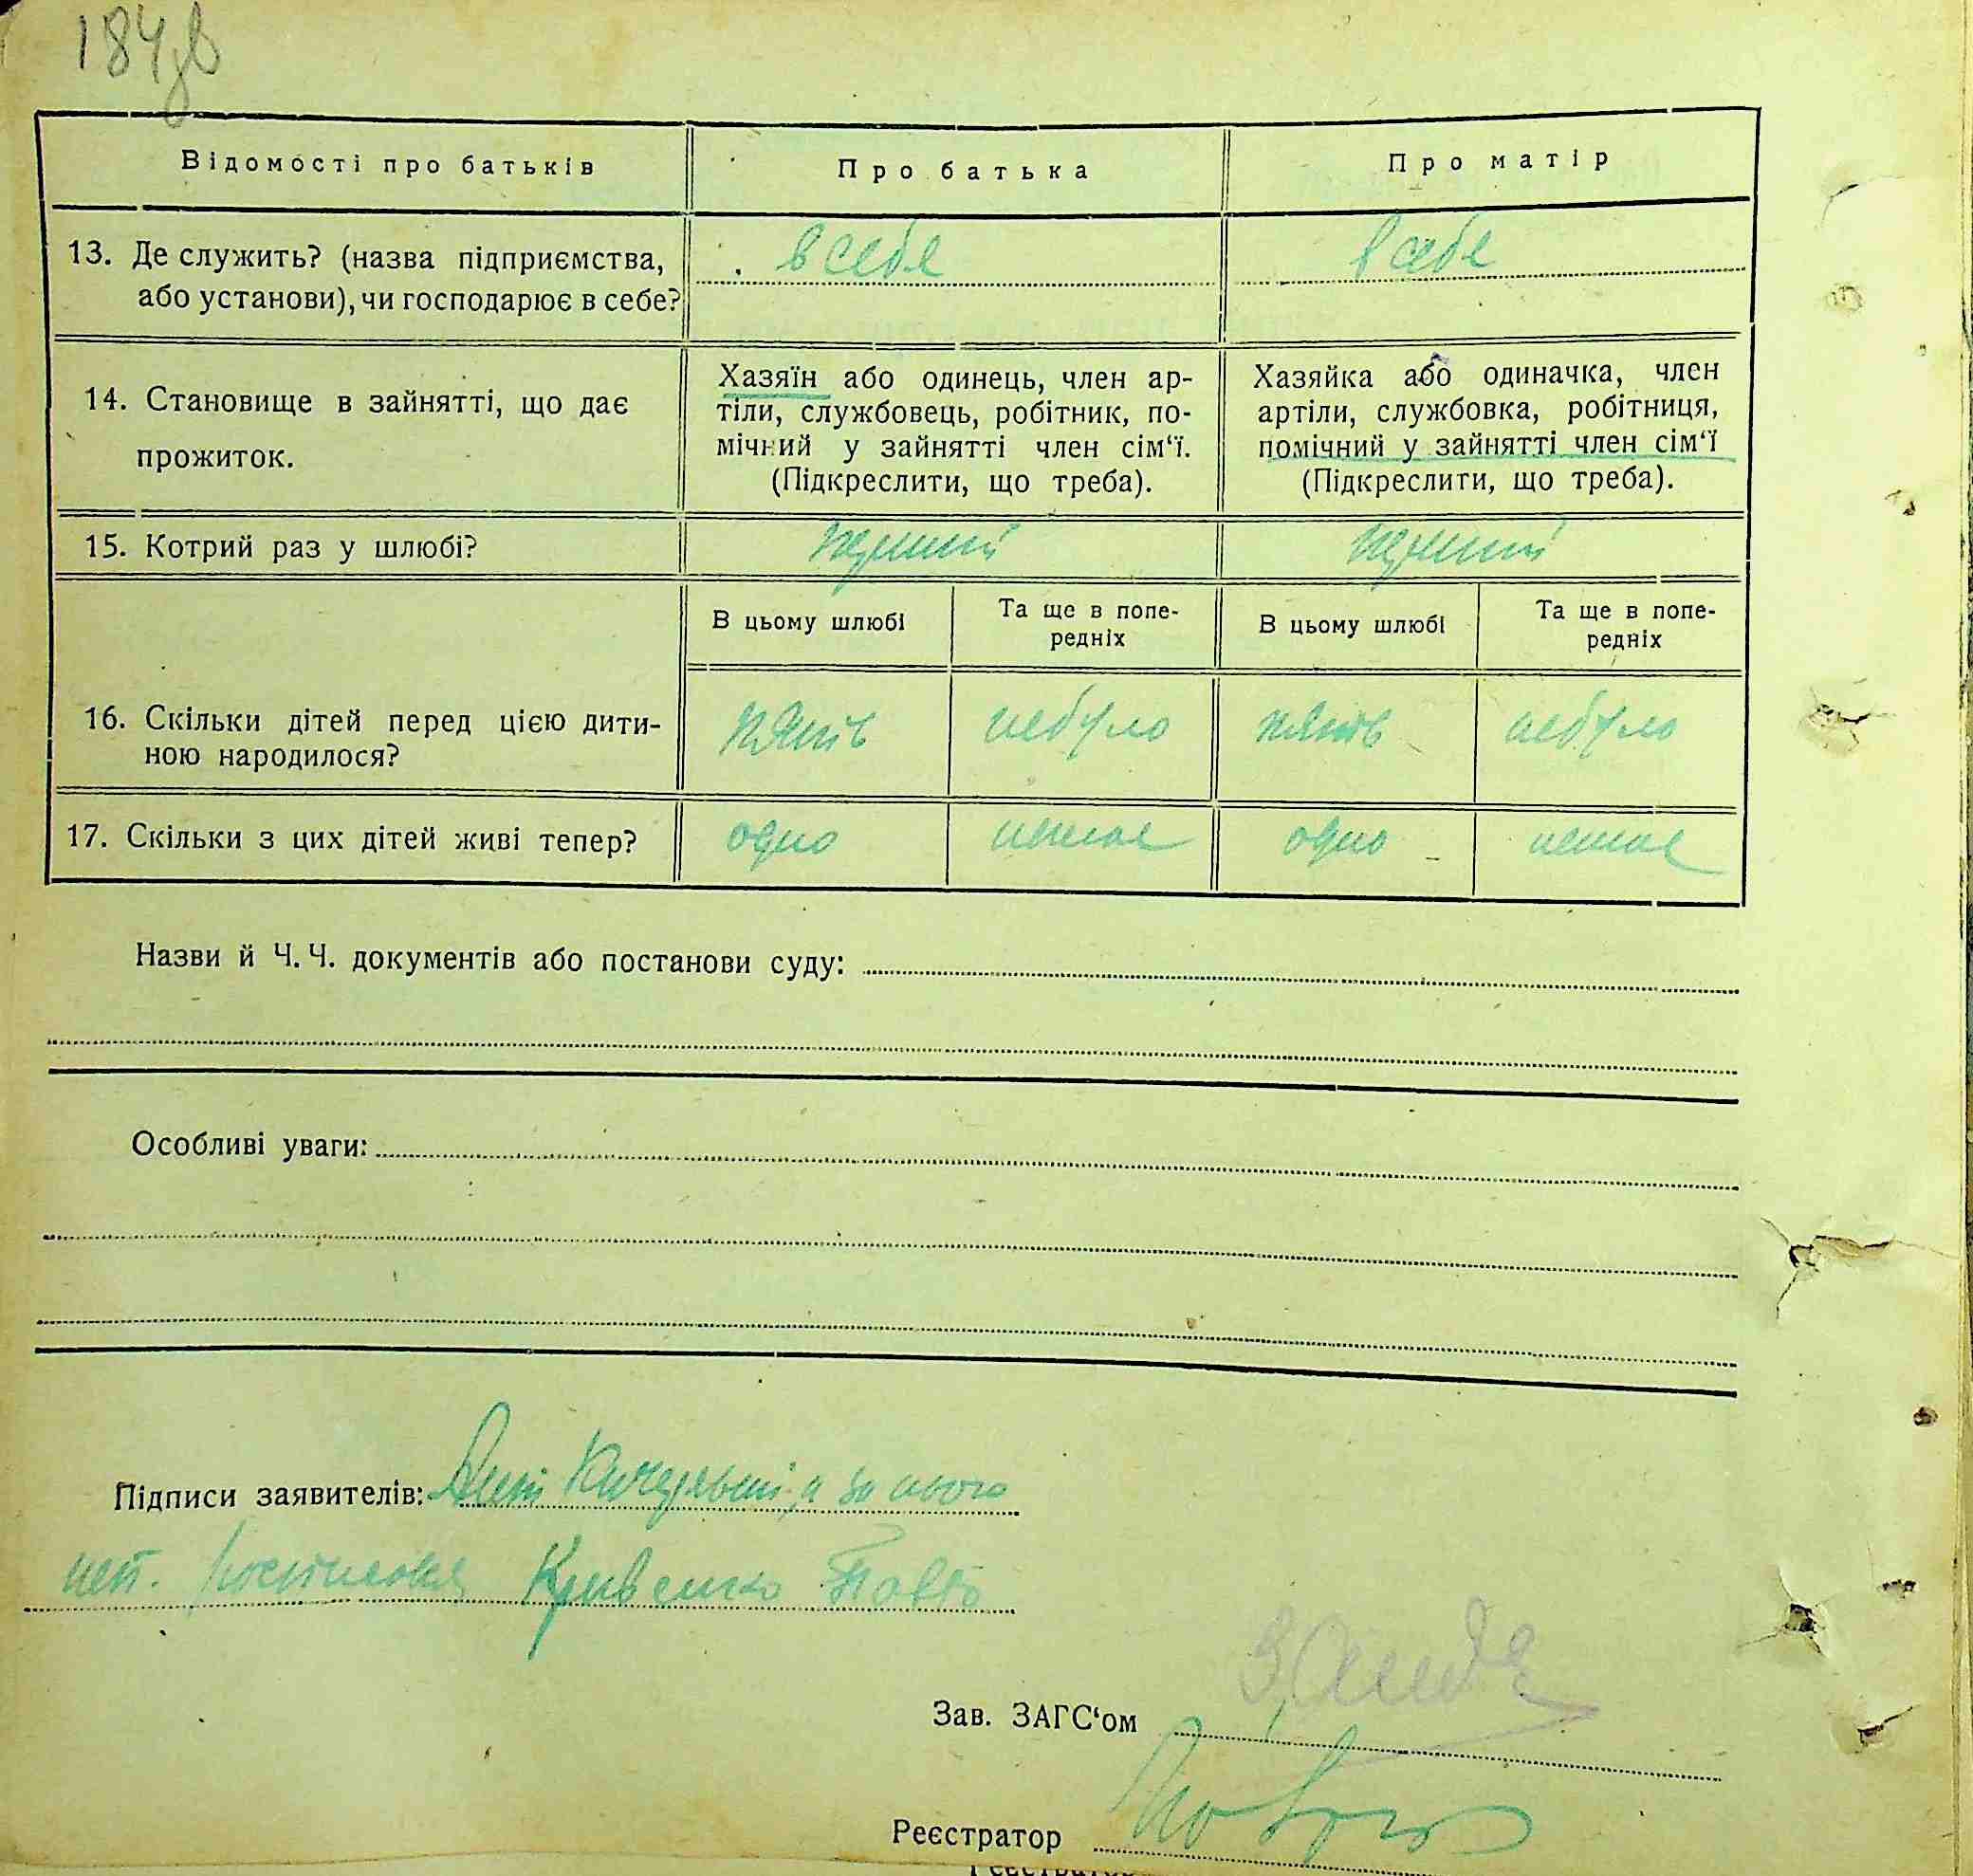 184зв
Відомості про батьків
Про батька
Про матір
13. Де служить? (назва підприємства,
або установи), чи господарює в себе?
в себе
в себе
14. Становище в зайнятті, що дає
прожиток.
Хазяїн або одинець, член ар-
тіли, службовець, робітник, по-
мічний у зайнятті член сім‘ї.
(Підкреслити, що треба).
Хазяйка або одиначка, член
артіли, службовка, робітниця,
помічний у зайнятті член сім‘ї
(Підкреслити, що треба).
15. Котрий раз у шлюбі?
перший
перший
В цьому шлюбі
Та ще в попе-
редніх
В цьому шлюбі
Та ще в попе-
редніх
16. Скільки дітей перед цією дити-
ною народилося?
пять
небуло
пять
небуло
17. Скільки з цих дітей живі тепер?
одно
немає
одно
немає
Назви й Ч. Ч. документів або постанови суду:
Особливі уваги:
Підписи заявителів: а за нього
неп. Кривенко
Зав. ЗАГС‘ом
Реєстратор